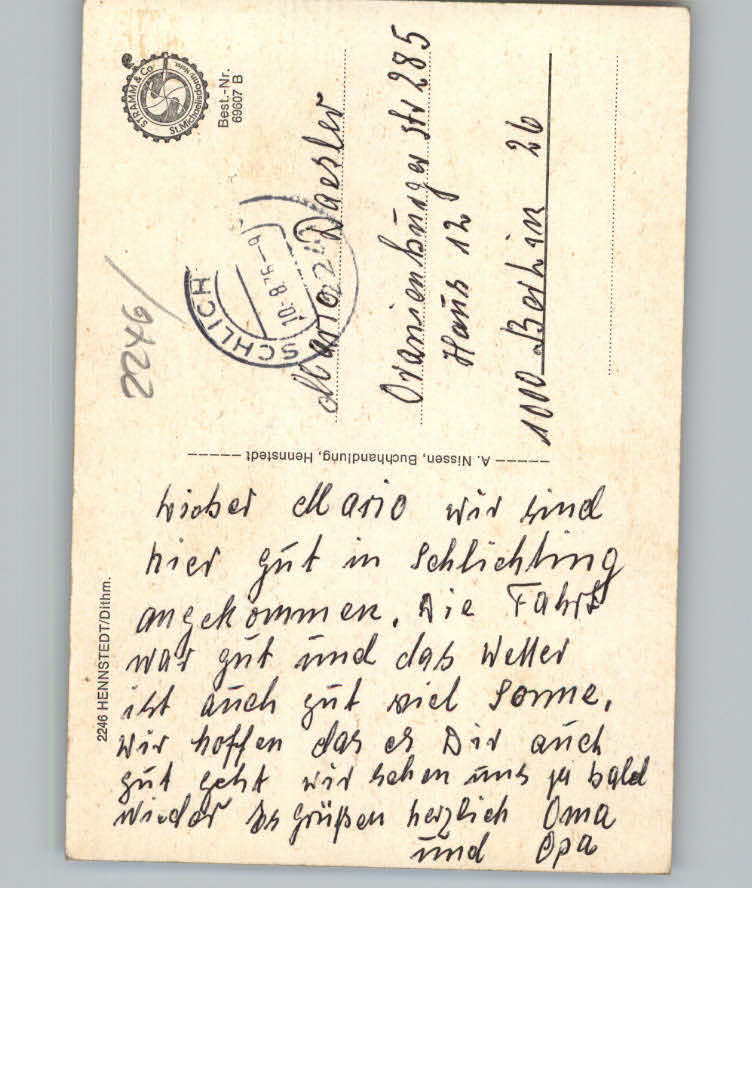 STRAMM & Co
St. Michaelisdonn
Best.-Nr.
69607 B
2246
SCHLICH
10.-8.75-9
Mario Daesler
Oranienburger Str 285
Haus 12
1000 Berlin 26
A. Nissen, Buchhandlung, Hennstedt
2246 HENNSTEDT/Dithm.
Lieber Mario wir sind
hier gut in Schlichting
angekommen. Die Fahrt
war gut und das Wetter
ist auch gut viel Sonne.
Wir hoffen das es Dir auch
gut geht wir sehen uns ja bald
wieder Es grüßen herzlich Oma
und Opa